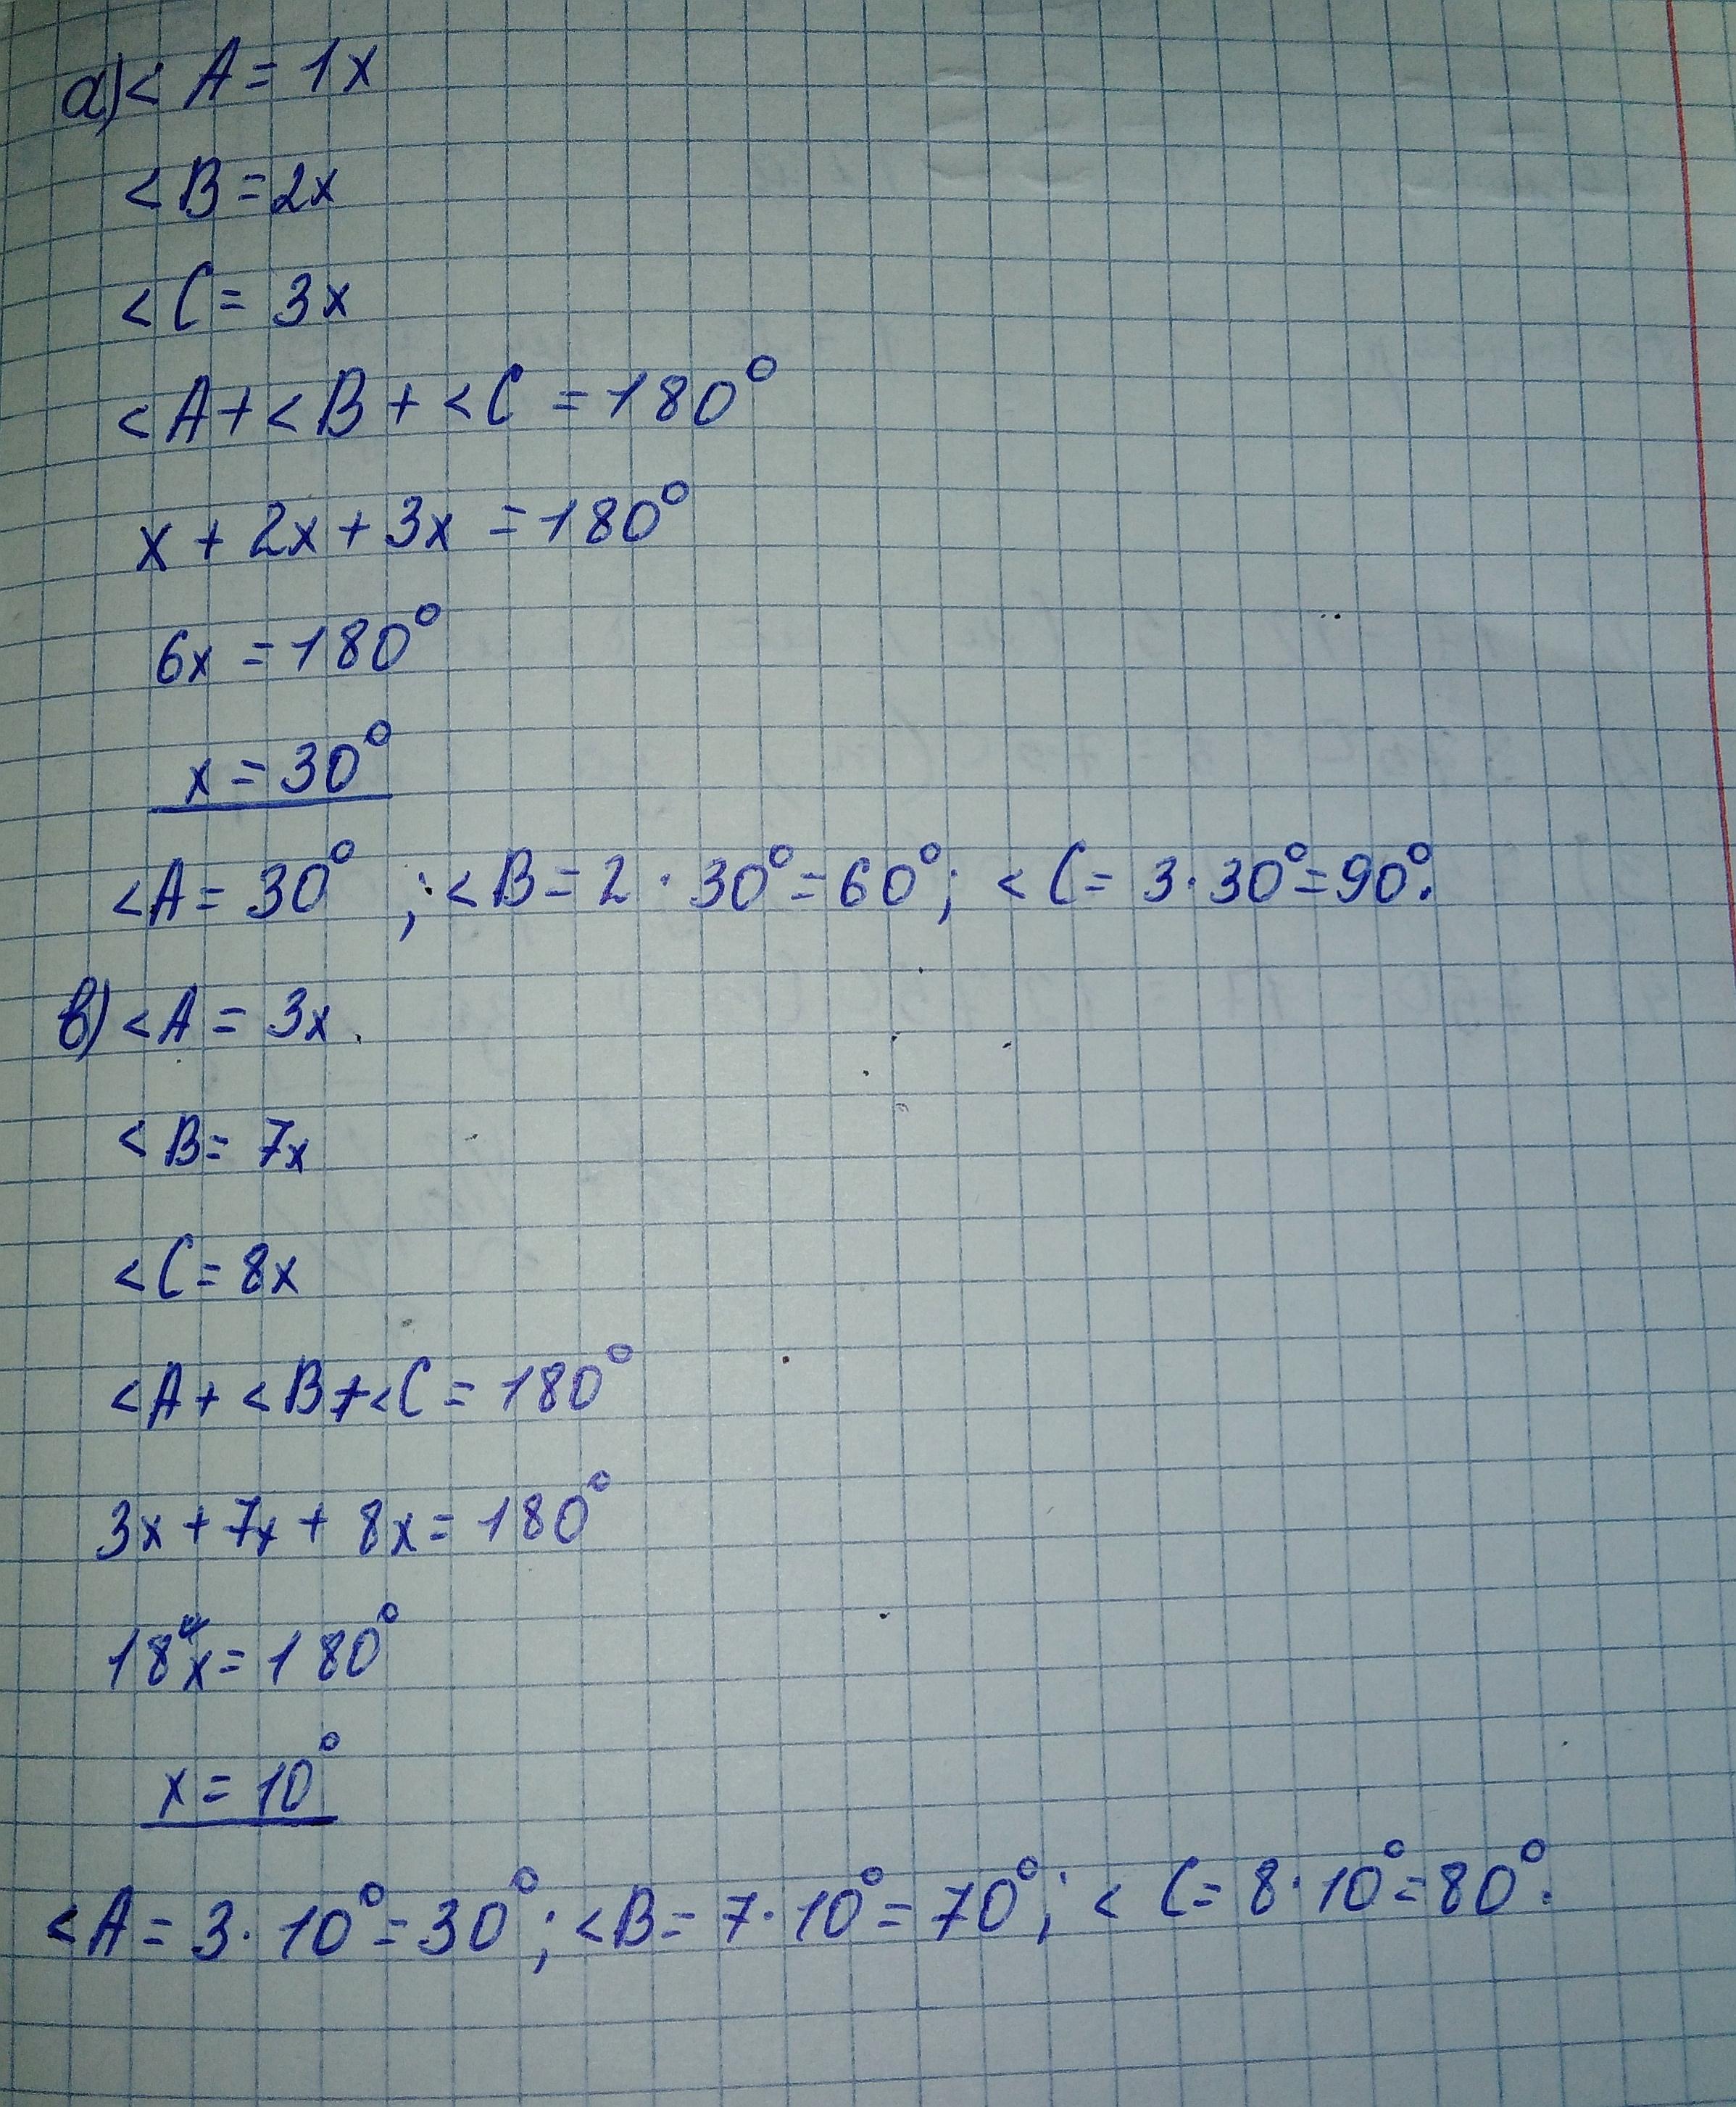 а) < A = 1x
< B = 2x
< C = 3x
< A + < B + < C = 180°
x + 2x + 3x = 180°
6x = 180°
x = 30°
< A = 30° ; < B = 2 · 30° = 60°; < C = 3 · 30° = 90°.
в) < A = 3x.
< B = 7x
< C = 8x
< A + < B + < C = 180°
3x + 7x + 8x = 180°
18x = 180°
x = 10°
< A = 3 · 10° = 30°; < B = 7 · 10° = 70°; < C = 8 · 10° = 80°.